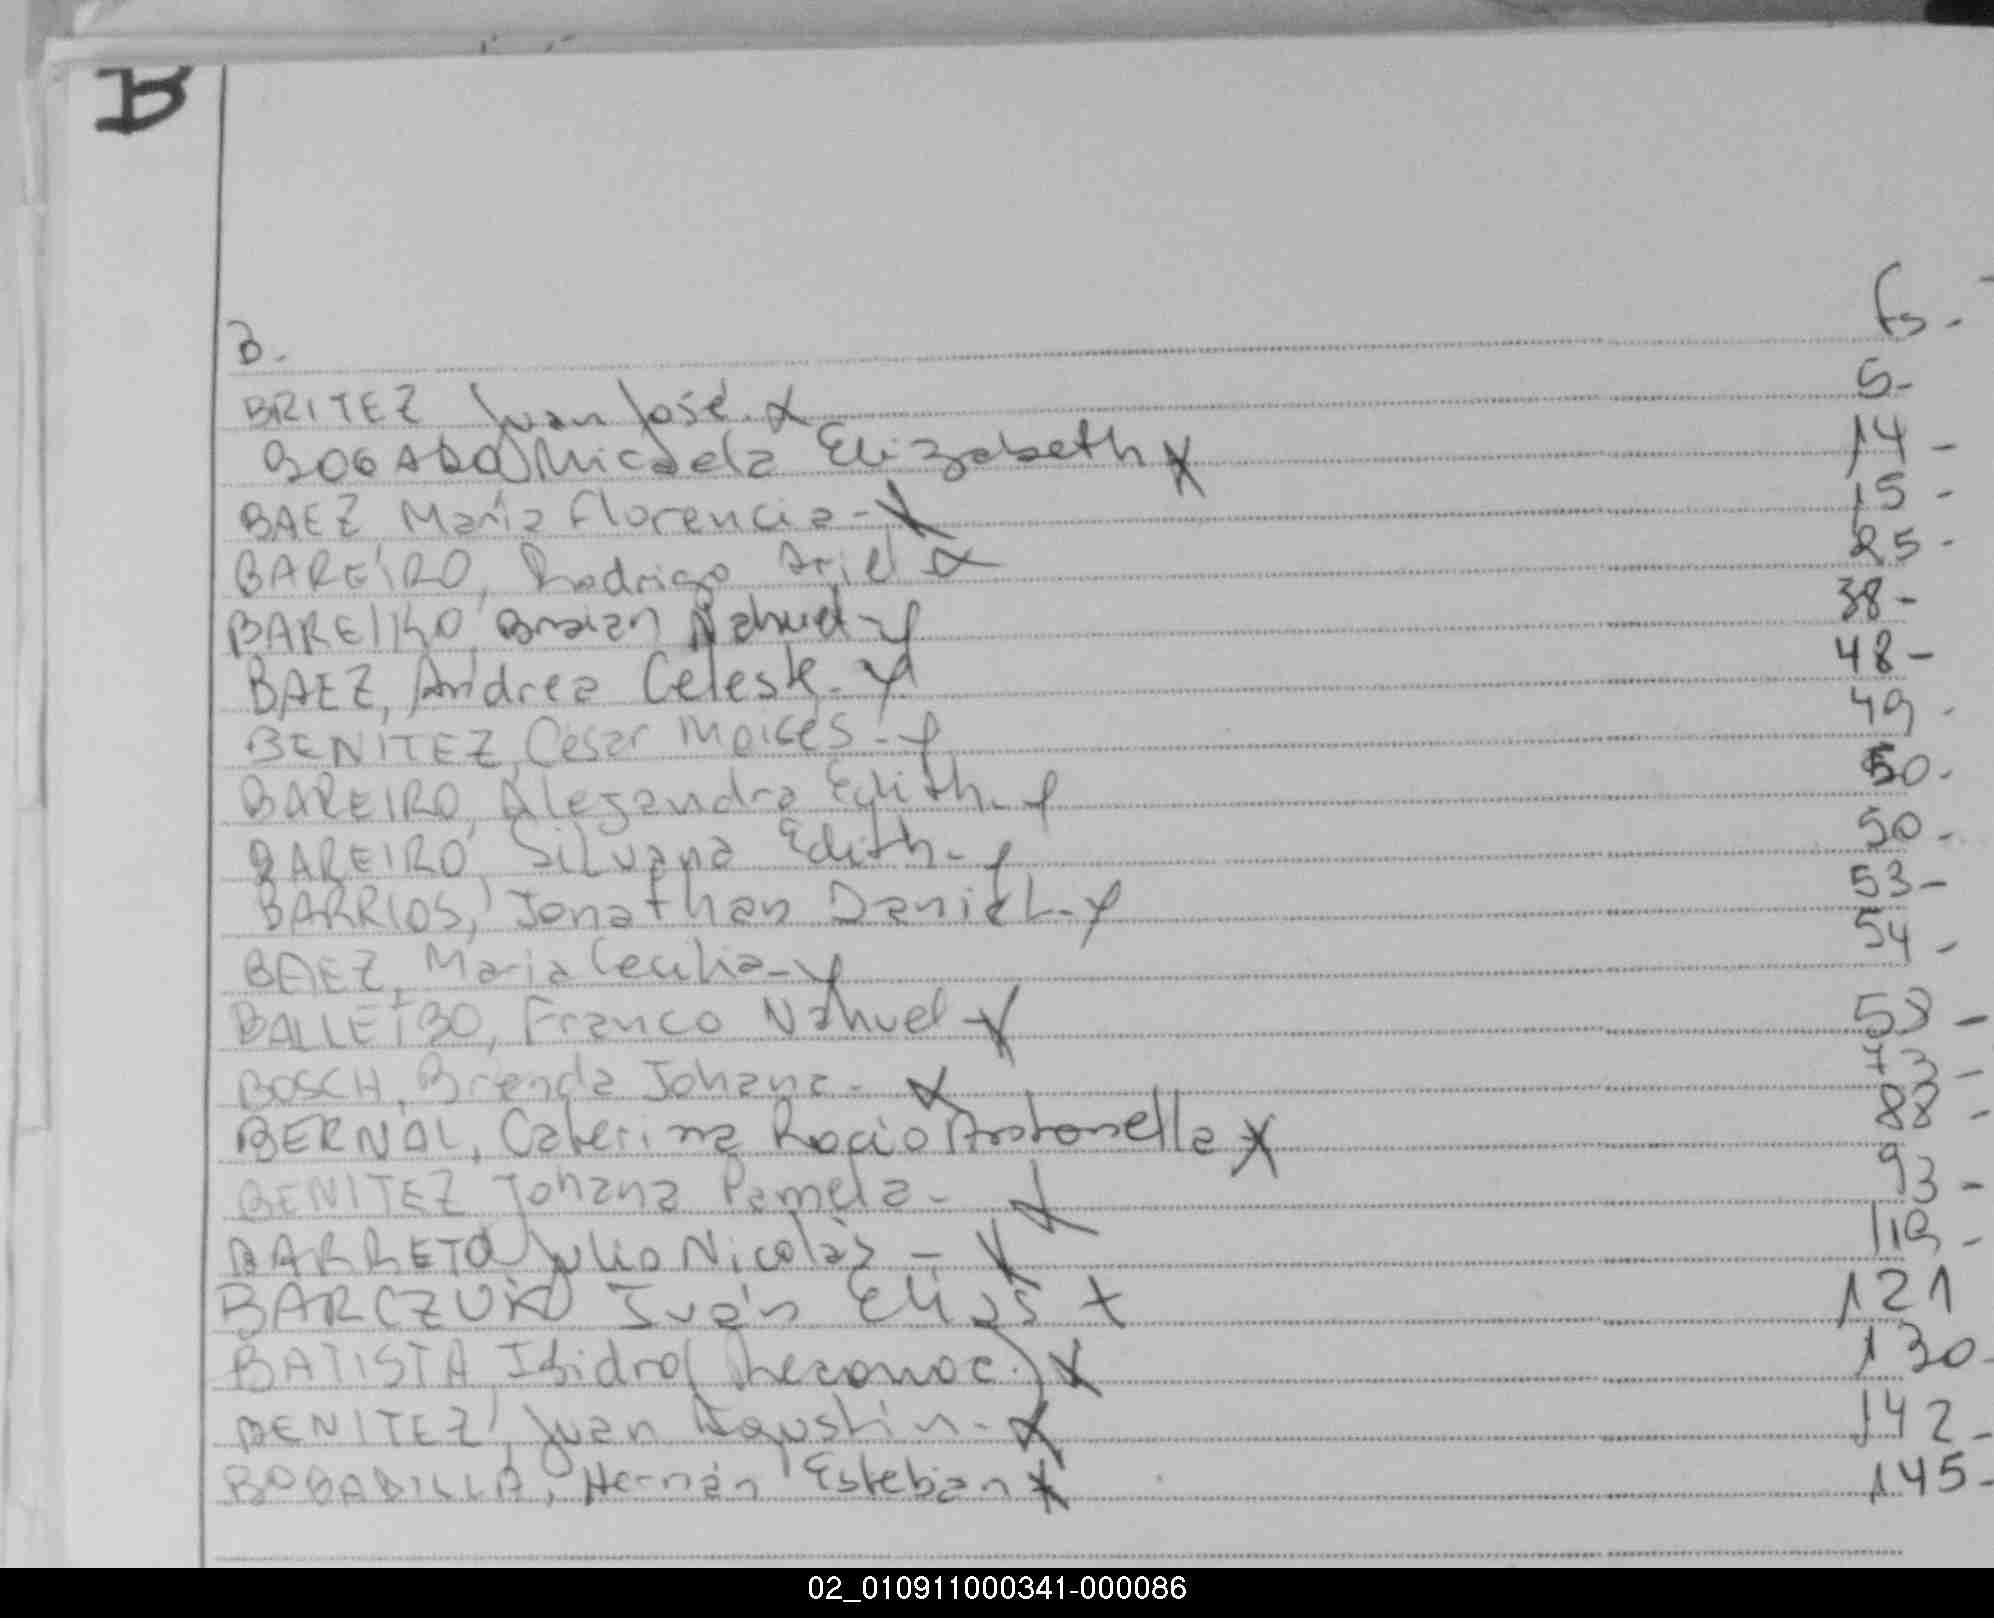 B
B. Fs-
BRITEZ Juan José. x 5-
BOGADO Micaela Elizabeth x 14-
BAEZ María Florencia - x 15-
BAREIRO, Rodrigo Ariel x 25-
BAREIRO Braian Nahuel - x 38-
BAEZ, Andrea Celeste - x 48-
BENITEZ, Cesar Moises - x 49-
BAREIRO, Alejandra Edith - x 50-
BAREIRO, Silvana Edith - x 50-
BARRIOS, Jonathan Daniel - x 53-
BAEZ, Maria Cecilia - x 54-
Franco Nahuel x 58-
BOSCH, Brenda Johana - x 73-
BERNAL, Caterina Rocio Antonella x 88-
BENITEZ Johana Pamela - x 93-
BARRETO Julio Nicolás - x
BARCZUK Iván Elias x 121
BATISTA Isidro (Reconoc.) x 130-
BENITEZ, Juan Agustin - x 142-
BOBADILLA, Hernán Esteban x 145-
02_010911000341-000086